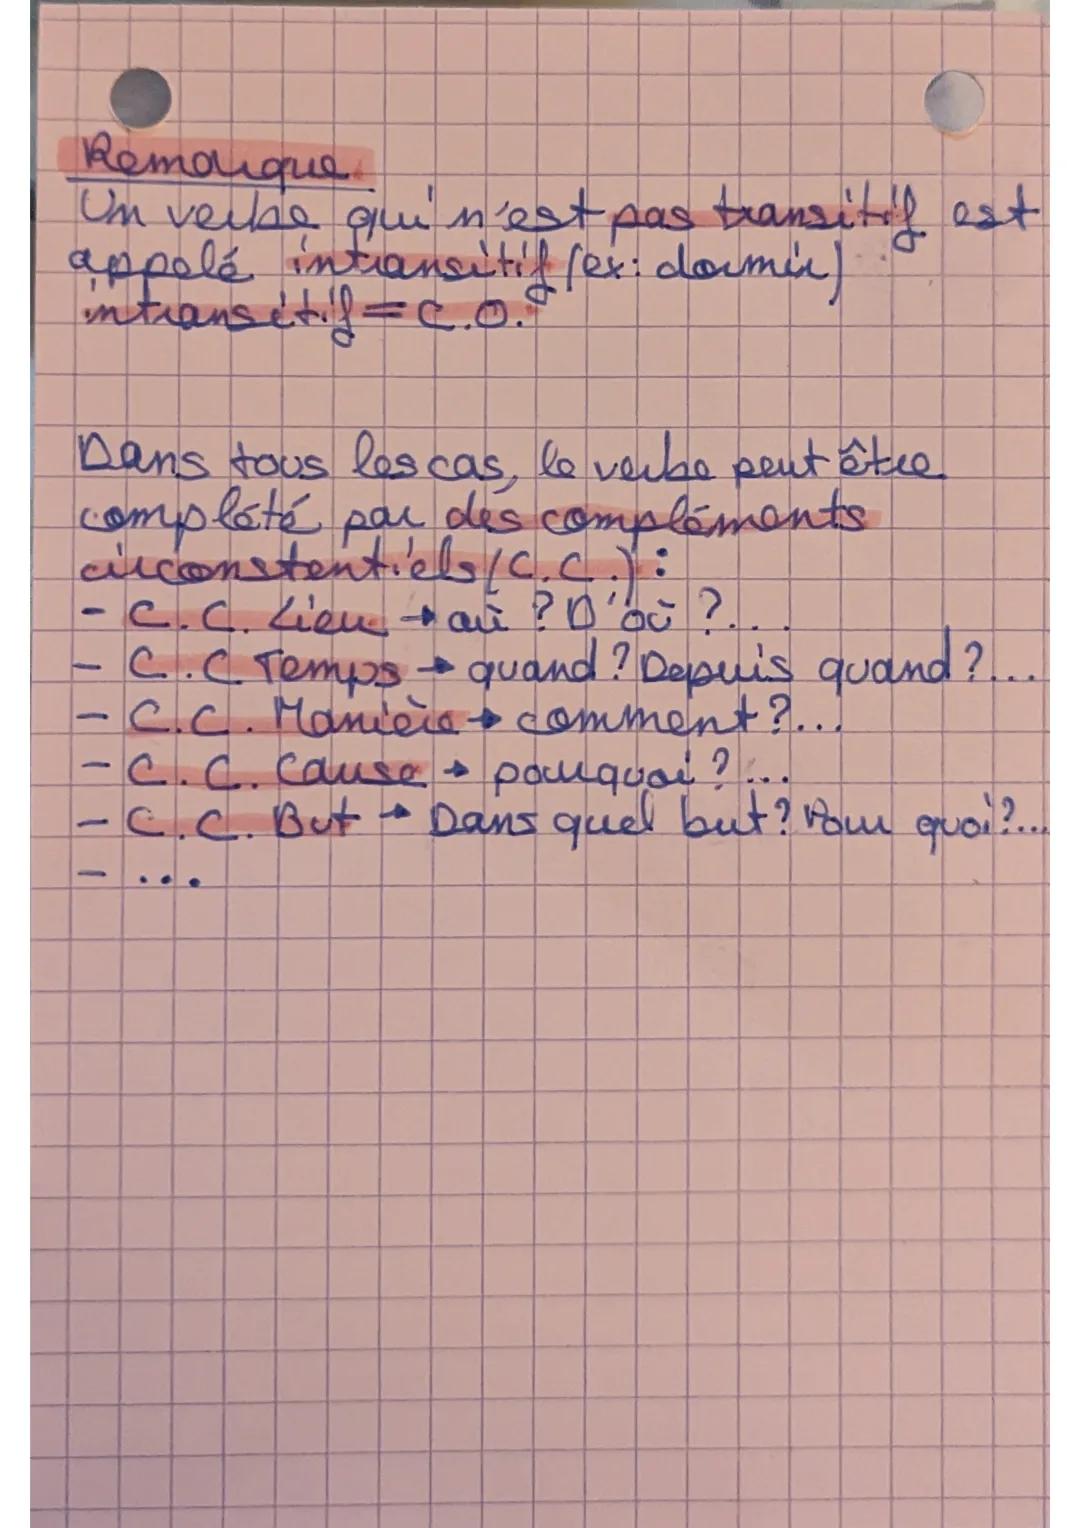 Remarque.
Un verbe qui n'est pas transitif est
appelé intransitif (ex: dormir)
intransitif = C.O.
Dans tous les cas, le verbe peut être
complété par des compléments
circonstentiels (C.C.) :
- C.C. Lieu → où ? D'où ?...
- C.C Temps → quand ? Depuis quand ?...
- C.C. Manière → comment ?...
- C.C. Cause → pourquoi ?...
- C.C. But → Dans quel but ? Pour quoi ?...
- ...